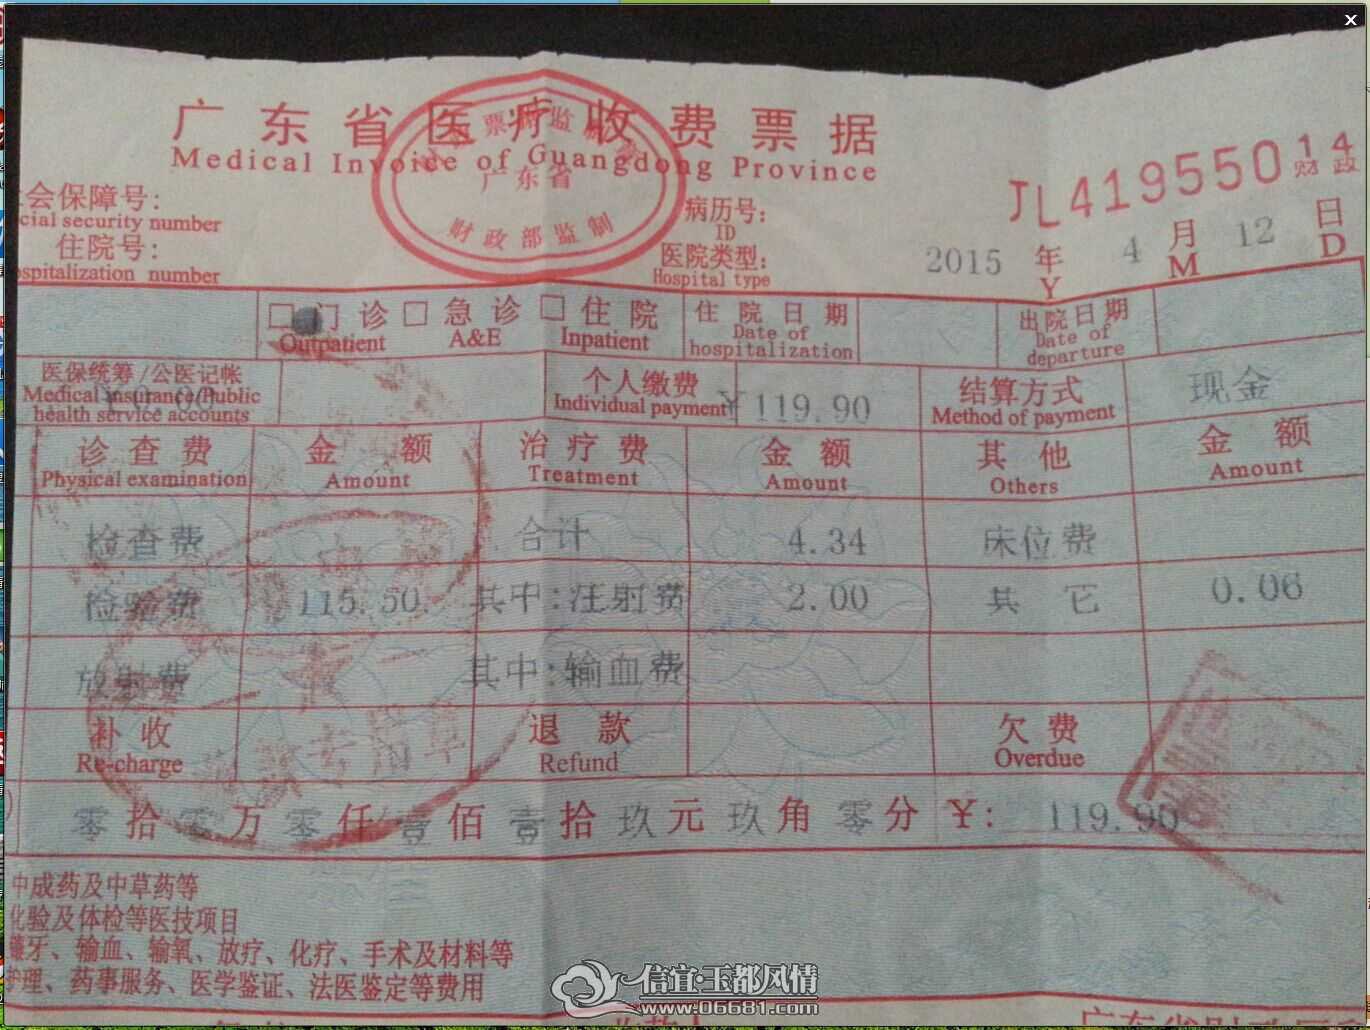 广东省医疗收费票据
Medical Invoice of Guangdong Province
广东省
财政部监制
JL41955014
财政
会保障号:
cial security number
病历号:
ID
住院号:
ospitalization number
医院类型:
Hospital type
2015 年 4 月 12 日
Y M D
□门诊 □急诊 □住院
Outpatient A&E Inpatient
住院日期
Date of
hospitalization
出院日期
Date of
departure
医保统筹/公医记帐
Medical insurance/Public
health service accounts
个人缴费
Individual payment
¥119.90
结算方式
Method of payment
现金
诊查费 金额 治疗费 金额 其他 金额
Physical examination Amount Treatment Amount Others Amount
检查费 合计 4.34 床位费
检验费 115.50 其中:注射费 2.00 其它 0.06
放射费 其中:输血费
补收 退款 欠费
Re-charge Refund Overdue
零拾零万零仟壹佰壹拾玖元玖角零分 ¥: 119.90
中成药及中草药等
化验及体检等医技项目
镶牙、输血、输氧、放疗、化疗、手术及材料等
护理、药事服务、医学鉴证、法医鉴定等费用
信宜·玉都风情
www.06681.com